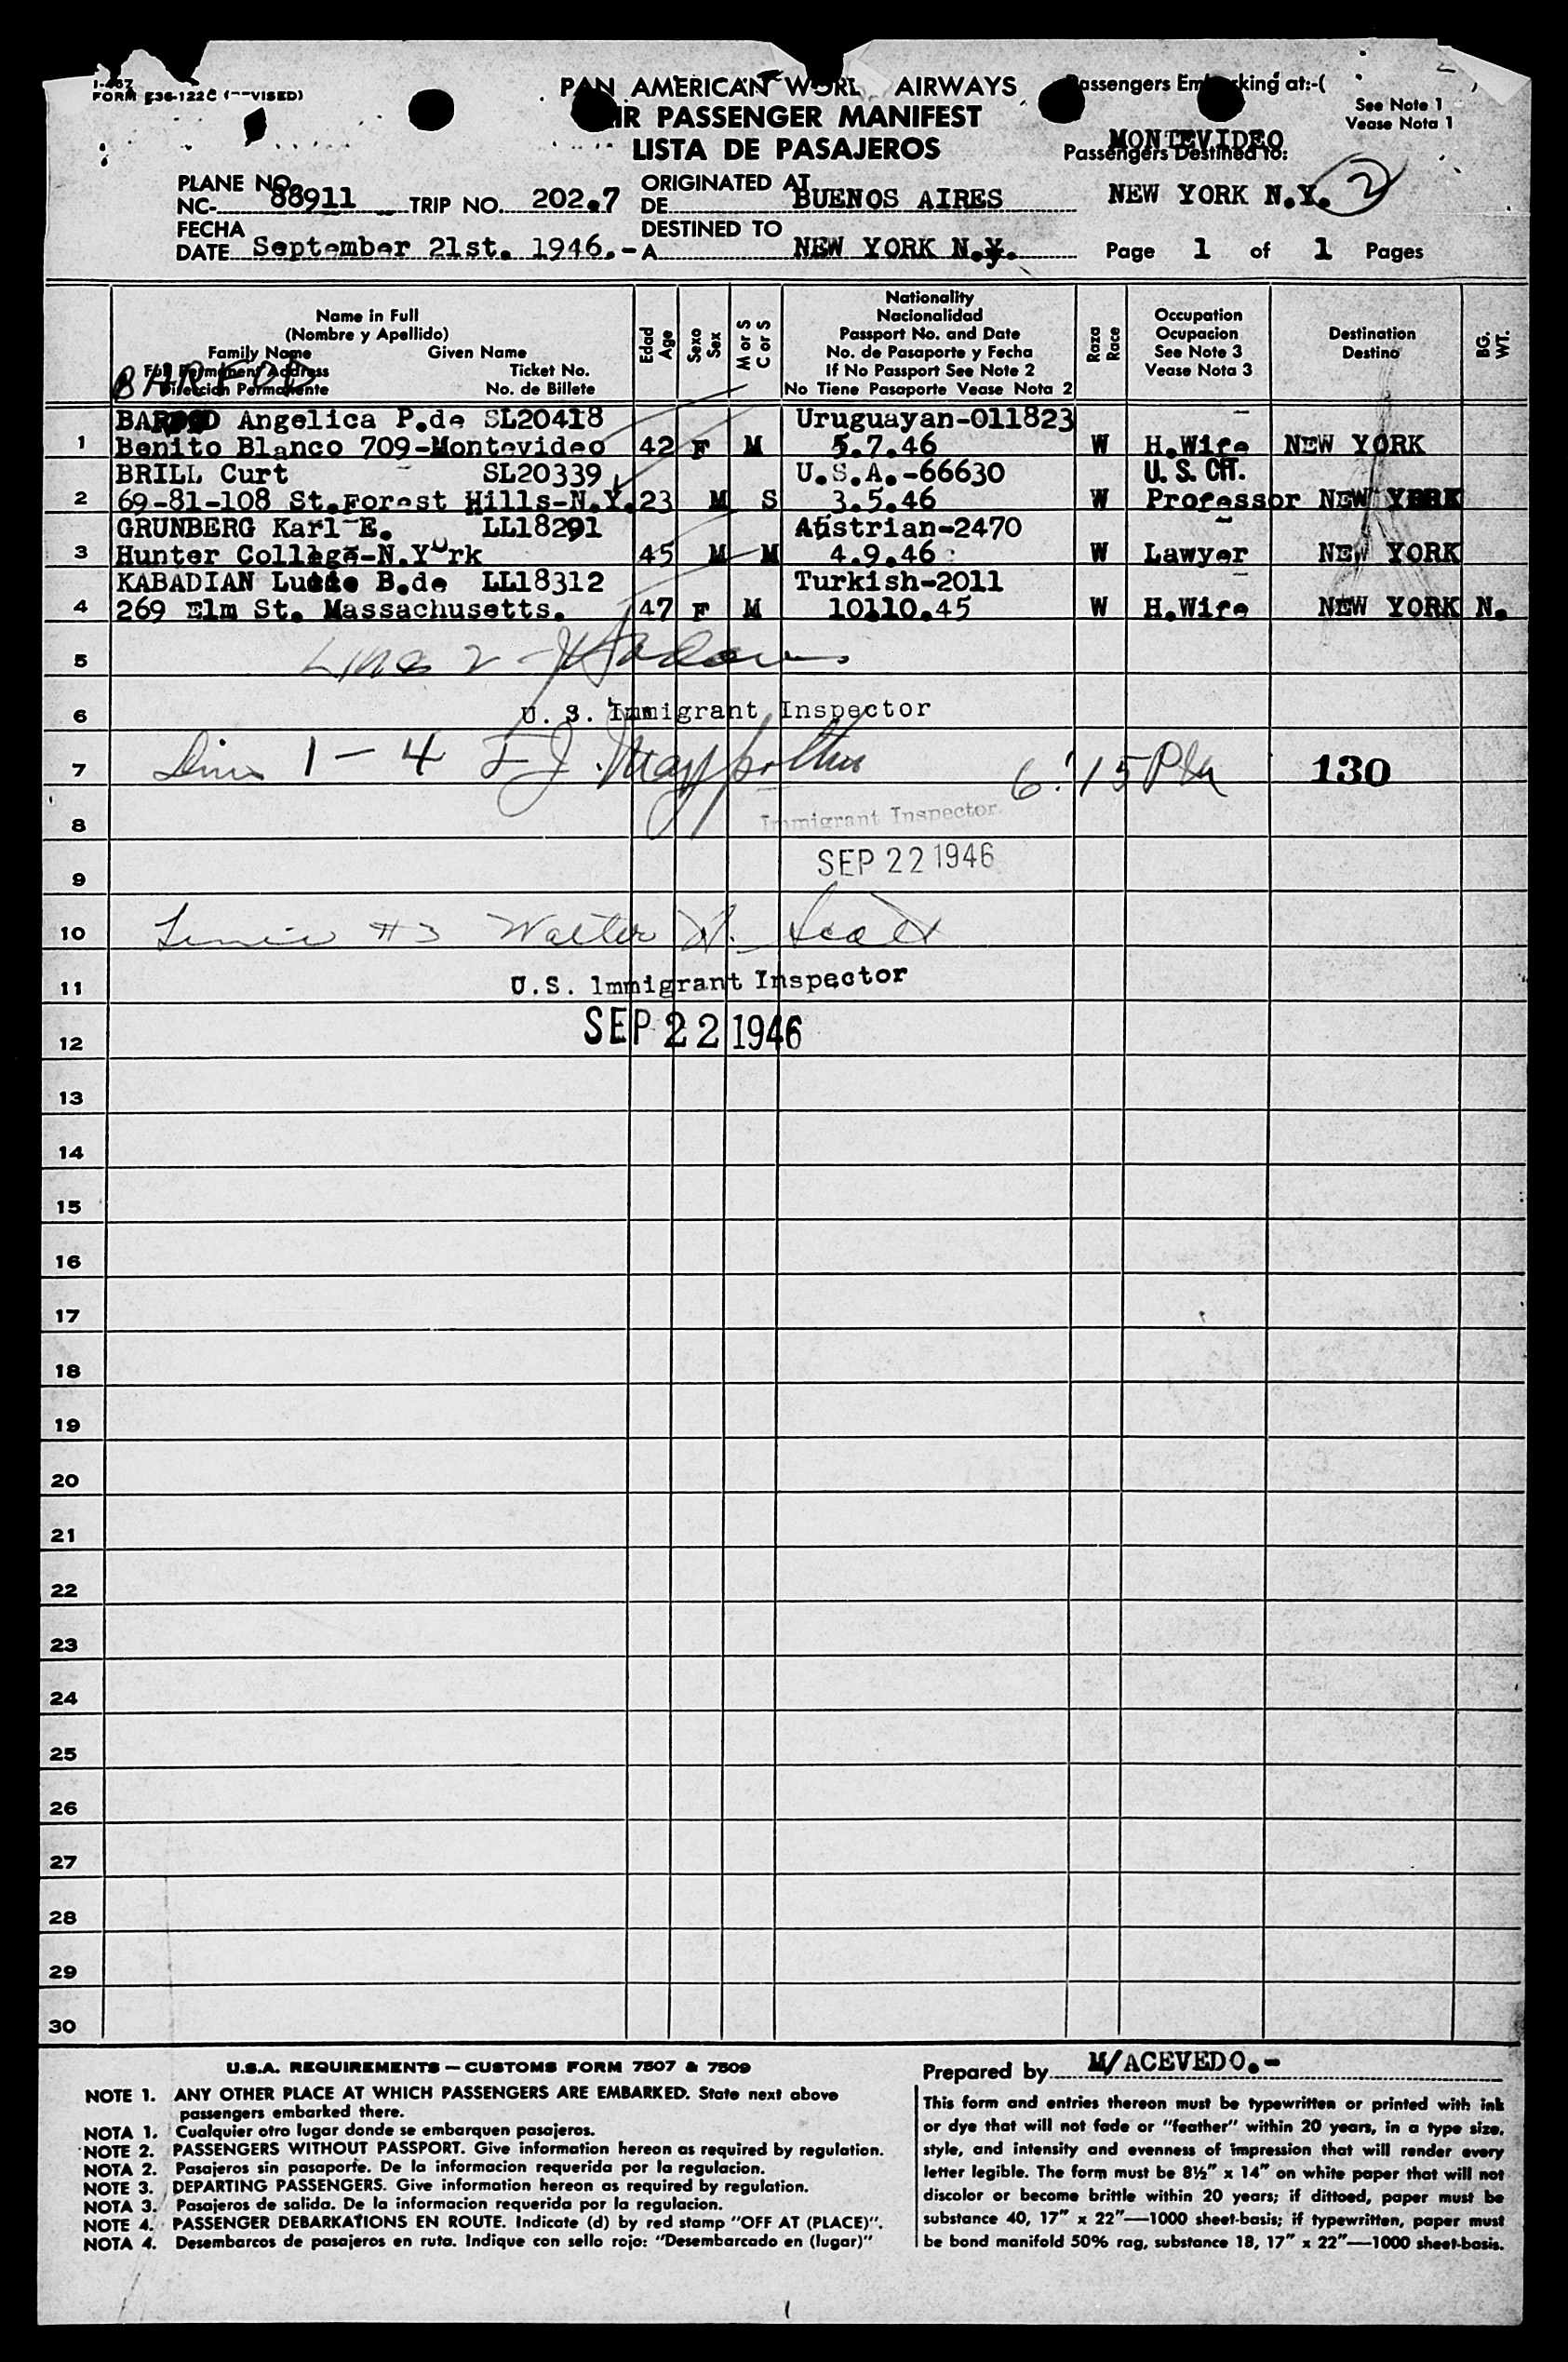 I-467
FORM 536-122C
PAN AMERICAN AIRWAYS
AIR PASSENGER MANIFEST
LISTA DE PASAJEROS
Passengers Embarking at:-(
See Note 1
Vease Nota 1
MONTEVIDEO
Passengers Destined to:
NEW YORK N.Y. 2
PLANE NO.
NC- 88911 TRIP NO. 202.7
ORIGINATED AT
DE BUENOS AIRES
FECHA
DATE September 21st. 1946.-
DESTINED TO
A NEW YORK N.Y.
Page 1 of 1 Pages
Name in Full
(Nombre y Apellido)
Family Name Given Name
Full Permanent Address Ticket No.
Direccion Permanente No. de Billete
Edad
Age
Sexo
Sex
M or S
C or S
Nationality
Nacionalidad
Passport No. and Date
No. de Pasaporte y Fecha
If No Passport See Note 2
No Tiene Pasaporte Vease Nota 2
Raza
Race
Occupation
Ocupacion
See Note 3
Vease Nota 3
Destination
Destino
BG.
WT.
Angelica P.de SL20418 Uruguayan-011823
1 Benito Blanco 709-Montevideo 42 F M 5.7.46 W H.Wife NEW YORK
BRILL Curt SL20339 U.S.A.-66630 U. S. CIT.
2 69-81-108 St.Forest Hills-N.Y. 23 M S 3.5.46 W Professor NEW YORK
GRUNBERG Karl E. LL18291 Austrian-2470
3 Hunter College-N.York 45 M M 4.9.46 W Lawyer NEW YORK
KABADIAN Lucie B.de LL18312 Turkish-2011
4 269 Elm St. Massachusetts. 47 F M 10.10.45 W H.Wife NEW YORK N.
5 Line 2
6 U. S. Immigrant Inspector
7 1 - 4 6:15 PM 130
8 Immigrant Inspector
9 SEP 22 1946
10 #3 Walter Scott
11 U.S. Immigrant Inspector
12 SEP 22 1946
13
14
15
16
17
18
19
20
21
22
23
24
25
26
27
28
29
30
U.S.A. REQUIREMENTS — CUSTOMS FORM 7507 & 7509
NOTE 1. ANY OTHER PLACE AT WHICH PASSENGERS ARE EMBARKED. State next above
passengers embarked there.
NOTA 1. Cualquier otro lugar donde se embarquen pasajeros.
NOTE 2. PASSENGERS WITHOUT PASSPORT. Give information hereon as required by regulation.
NOTA 2. Pasajeros sin pasaporte. De la informacion requerida por la regulacion.
NOTE 3. DEPARTING PASSENGERS. Give information hereon as required by regulation.
NOTA 3. Pasajeros de salida. De la informacion requerida por la regulacion.
NOTE 4. PASSENGER DEBARKATIONS EN ROUTE. Indicate (d) by red stamp "OFF AT (PLACE)".
NOTA 4. Desembarcos de pasajeros en ruta. Indique con sello rojo: "Desembarcado en (lugar)"
Prepared by M/ACEVEDO.-
This form and entries thereon must be typewritten or printed with ink
or dye that will not fade or "feather" within 20 years, in a type size,
style, and intensity and evenness of impression that will render every
letter legible. The form must be 8½" x 14" on white paper that will not
discolor or become brittle within 20 years; if dittoed, paper must be
substance 40, 17" x 22"—1000 sheet-basis; if typewritten, paper must
be bond manifold 50% rag, substance 18, 17" x 22"—1000 sheet-basis.